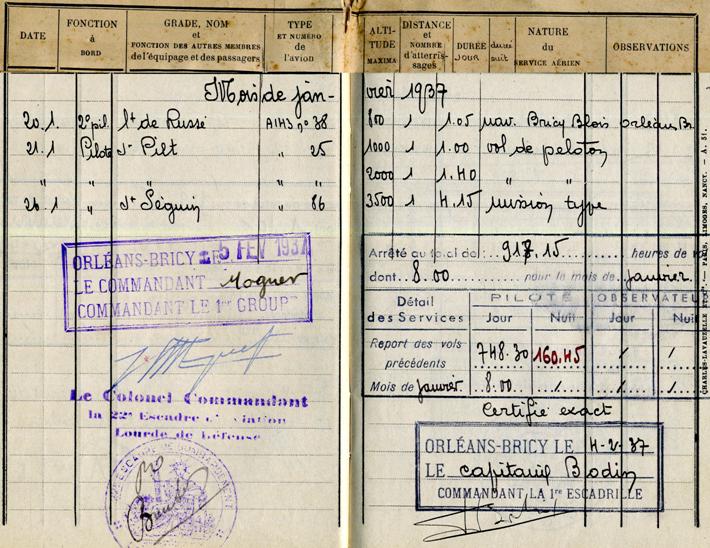 DATE FONCTION à BORD GRADE, NOM et FONCTION DES AUTRES MEMBRES de l'équipage et des passagers TYPE ET NUMÉRO de l'avion
ALTITUDE MAXIMA DISTANCE et NOMBRE d'atterrissages DURÉE JOUR durée nuit NATURE du SERVICE AÉRIEN OBSERVATIONS
Mois de janvier 1937
20.1. 2º pil. lt de Russé A1H3 nº 38 800 1 1.05 nav. Bricy Blois Orléans Br.
21.1 Pilote " 25 1000 1 1.00 vol de peloton
" " " " " 2000 1 1.40 " "
26.1 " Séguin " 86 3500 1 4.15 mission type
ORLÉANS-BRICY LE 5 FEV 1937
LE COMMANDANT
COMMANDANT LE 1er GROUPE
Le Colonel Commandant
la 22e Escadre d'Aviation
Lourde de Défense
Arrêté au total de : 917.15 heures de vol
dont 8.00 pour le mois de janvier
Détail des Services PILOTE OBSERVATEUR
Jour Nuit Jour Nuit
Report des vols précédents 748.30 160.45 / /
Mois de janvier 8.00 / / /
Certifié exact
ORLÉANS-BRICY LE 4-2-37
LE capitaine Bodin
COMMANDANT LA 1re ESCADRILLE
CHARLES-LAVAUZELLE ET Cie. — PARIS, LIMOGES, NANCY. — A. 51.